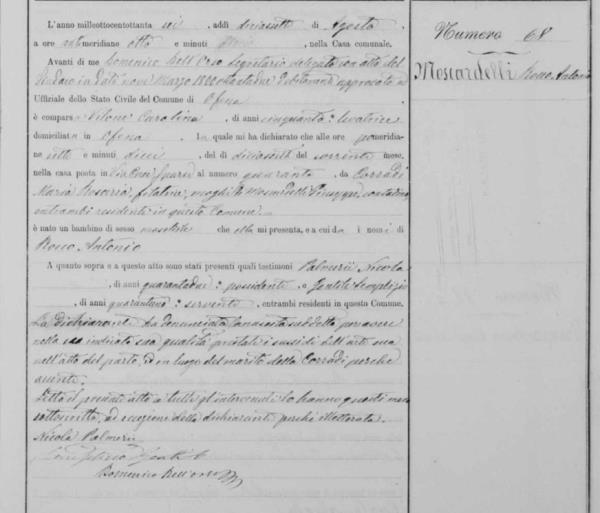 L'anno milleottocentottanta sei, addi diciassette di Agosto
a ore antemeridiane otto e minuti, nella Casa comunale.
Avanti di me Domenico Dell'Orso Segretario delegato con atto del
Sindaco in data nove Marzo 1882 approvato
Uffiziale dello Stato Civile del Comune di Ofena
è comparsa Vilone Carolina, di anni cinquanta levatrice
domiciliata in Ofena la quale mi ha dichiarato che alle ore pomeridia-
ne sette e minuti dieci, del dì diciassette del corrente mese,
nella casa posta in al numero quaranta, da Corradi
Maria Rosaria filatrice, moglie di Moscardelli Giuseppe, contadino
entrambi residenti in questo Comune
è nato un bambino di sesso maschile che ella mi presenta, e a cui da i nomi di
Rocco Antonio
A quanto sopra e a questo atto sono stati presenti quali testimoni Palmerii Nicola
, di anni quarantadue possidente e Gentile Simplizio
, di anni quarantuno servente, entrambi residenti in questo Comune.
La dichiarante ha denunciata la nascita suddetta per avere
nella indicata sua qualità prestati i sussidi dell'arte sua
nell'atto del parto, ed in luogo del marito della Corradi perchè
assente.
Letto il presente atto a tutti gl'intervenuti lo hanno questi meco
sottoscritto, ad eccezione della dichiarante perchè illetterata.
Nicola Palmerii
Simplizio Gentile
Domenico Dell'Orso
Numero 68
Moscardelli Rocco Antonio